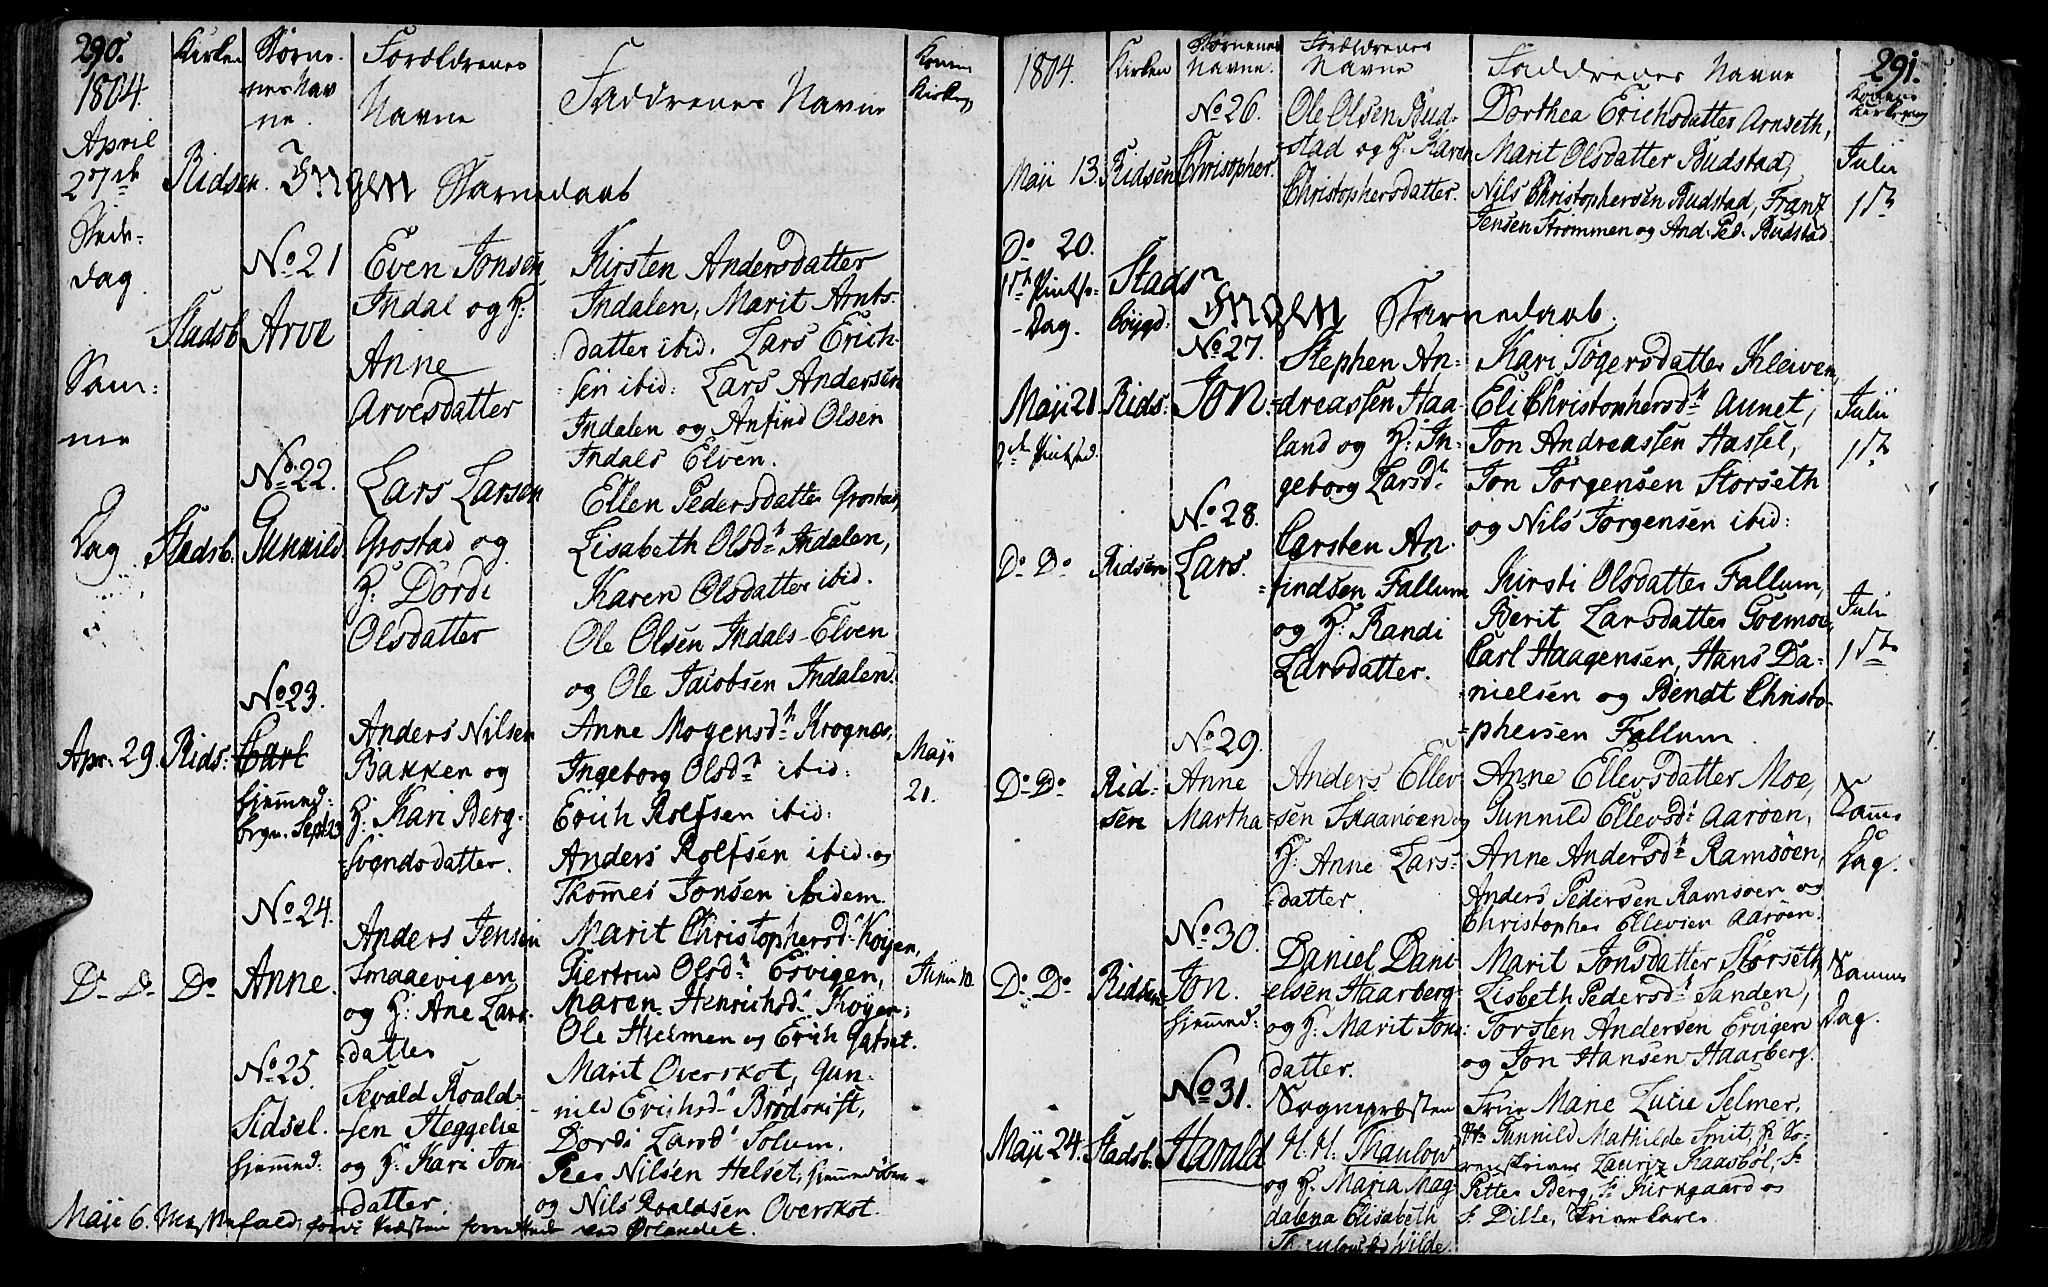 290.
1804.
Kirken
Børne-
nes Nav
ne.
Forældrenes
Navne
Faddrenes Navne
Konens
Kirkeg.
April
27de
Bede-
dag
Ridsen. Ingen Barnedaab
No 21
Stadsb. Arve
Even Jonsen
Indal og H:
Anne
Arvesdatter
Kirsten Andersdatter
Indalen, Marit Arnts-
datter ibid. Lars Erich-
sen ibid: Lars Andersen
Indalen og Anfind Olsen
Indals Elven.
Sam-
me
Dag
No 22.
Stadsb. Gunnild.
Lars Larsen
Grostad og
H: Dordi
Olsdatter
Ellen Pedersdatter Grostad,
Lisabeth Olsdr Indalen,
Karen Olsdatter ibid.
Ole Olsen Indals-Elven
og Ole Jacobsen Indalen.
No 23.
Apr. 29. Rids: Carl
hjemmed:
Sept: 23
Anders Nilsen
Bakken og
H: Kari Berg-
svendsdatter.
Anne Mogensdr Krognes,
Ingeborg Olsdr ibid:
Erich Rolfsen ibid:
Anders Rolfsen ibid. og
Thomes Jonsen ibidem.
Maji
21.
No 24.
Do Do Do Anne.
Anders Jensen
Smaaevigen
og H: Ane Lars-
datter
Marit Christophersd: Køyen,
Giertrud Olsdr Ervigen,
Maren Henrichsdr Køyen,
Ole Hielmen og Erich Garset.
Junii 10.
No 25.
Sidsel.
hjemmed:
Sevald Roald-
sen Heggelie
og H: Kari Jons
datter.
Marit Overskot, Gun-
nild Erichsdr Brødskift,
Dordi Larsdr Solum.
Peer Nilsen Helset,
og Nils Roaldsen Overskot.
Maji 6. Messefald, fordi Præsten forrettede ved Ørlandet.
1804.
Kirken
Børnenes
Navne.
Forældrenes
Navne
Faddrenes Navne
291.
Konens
Kirkegang
No 26.
Maji 13. Ridsen Christopher.
Ole Olsen Bud-
stad og H: Karen
Christophersdatter.
Dorthea Erichsdatter Arnseth,
Marit Olsdatter Budstad,
Nils Christophersen Budstad, Franz
Jensen Strømmen og And: Ped: Budstad.
Julii
1ste
Do 20.
1ste Pintse-
-Dag.
Stads-
bøygd:
Ingen Barnedaab.
No 27.
Maji 21 Rids: Jon
2den Pintsed.
Stephen An-
dreassen Haa-
land og H: In-
geborg Larsdr
Kari Tøgersdatter Kleiven,
Eli Christophersdr Aunet,
Jon Andreassen Hassel,
Jon Jørgensen Storseth
og Nils Jørgensen ibid:
Julii
1ste
No 28.
Do Do Ridsen Lars.
Carsten An-
findsen Fallum
og H: Randi
Larsdatter.
Kirsti Olsdatter Fallum,
Berit Larsdatter Goemoe,
Carl Haagensen, Hans Da-
nielsen og Bendt Christo-
phersen Fallum.
Julii
1ste
No 29.
Do Do Rid-
sen
Anne
Martha
Anders Ellev-
sen Skaanøen og
H: Anne Lars-
datter.
Anne Ellevsdatter Moe,
Gunnild Ellevsdr Aarøen,
Anne Andersdr Ramsøen,
Anders Pedersen Ramsøen og
Christopher Ellevsen Aarøen.
Samme
Dag.
No 30.
Do Do Ridsen Jon.
hjemmed:
Daniel Dani-
elsen Haarberg
og H: Marit Jons-
datter.
Marit Jonsdatter Storseth,
Lisbeth Pedersdr Sanden,
Torsten Andersen Ervigen
og Jon Hansen Haarberg.
Samme
Dag.
No 31.
Maji 24. Stadsb: Harald
Sognepræsten
H. H. Thaulow
og H: Maria Mag
dalena Elisabeth
Thaulow f. Wilde.
Frue Marie Lucie Selmer,
Gunnild Mathilde Smit, Hr So-
renskriver Lauriz Kaasbøl, Hr
Petter Berg, Hr Kirkgaard og
Hr Dille, Skriverkarle.